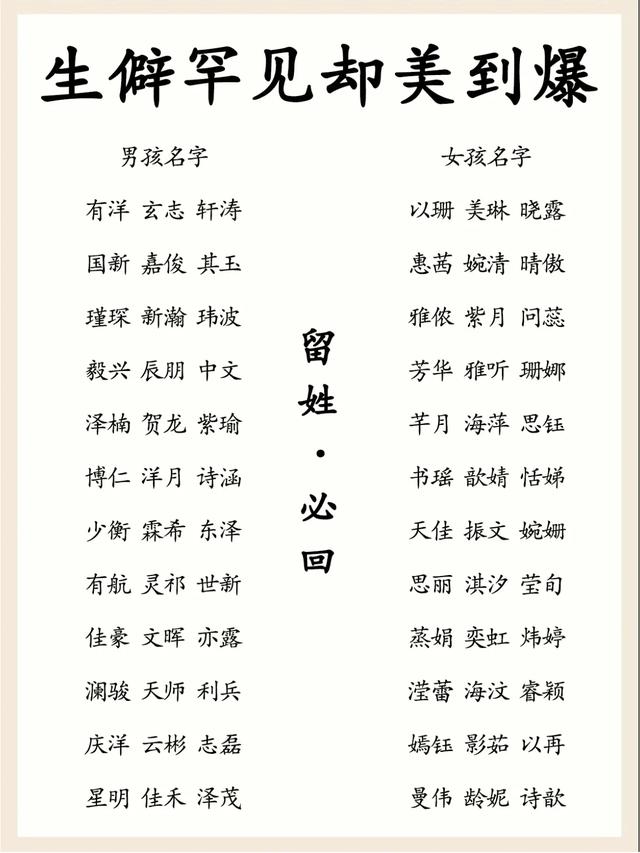 生僻罕见却美到爆
男孩名字
有洋 玄志 轩涛
国新 嘉俊 其玉
瑾琛 新瀚 玮波
毅兴 辰朋 中文
泽楠 贺龙 紫瑜
博仁 洋月 诗涵
少衡 霖希 东泽
有航 灵祁 世新
佳豪 文晖 亦露
澜骏 天师 利兵
庆洋 云彬 志磊
星明 佳禾 泽茂
留姓·必回
女孩名字
以珊 美琳 晓露
惠茜 婉清 晴傲
雅侬 紫月 问蕊
芳华 雅听 珊娜
芊月 海萍 思钰
书瑶 歆婧 恬娣
天佳 振文 婉姗
思丽 淇汐 莹旬
蒸娟 奕虹 炜婷
滢蕾 海汶 睿颖
嫣钰 影茹 以再
曼伟 龄妮 诗歆